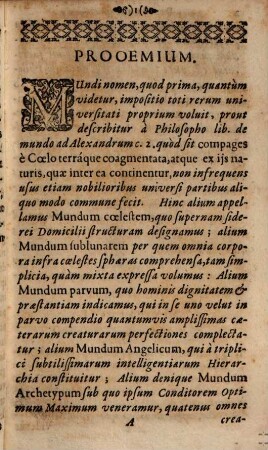 1
PROOEMIUM.
MUndi nomen, quod prima, quantùm
videtur, impositio toti rerum uni-
versitati proprium voluit, prout
describitur à Philosopho lib. de
mundo ad Alexandrum c. 2. quòd sit compages
è Cœlo terráque coagmentata, atque ex ijs na-
turis, quæ inter ea continentur, non infrequens
usus etiam nobilioribus universi partibus ali-
quo modo commune fecit. Hinc alium appel-
lamus Mundum cœlestem, quo supernam side-
rei Domicilii structuram designamus; alium
Mundum sublunarem per quem omnia corpo-
ra infra cœlestes sphæras comprehensa, tam sim-
plicia, quàm mixta expressa volumus: Alium
Mundum parvum, quo hominis dignitatem &
præstantiam indicamus, qui in se uno velut in
parvo compendio quantumvis amplissimas cæ-
terarum creaturarum perfectiones complecta-
tur; alium Mundum Angelicum, qui à tripli-
ci subtilissimarum intelligentiarum Hierar-
chia constituitur; Alium denique Mundum
Archetypum sub quo ipsum Conditorem Opti-
mum Maximum veneramur, quatenus omnes
A crea-